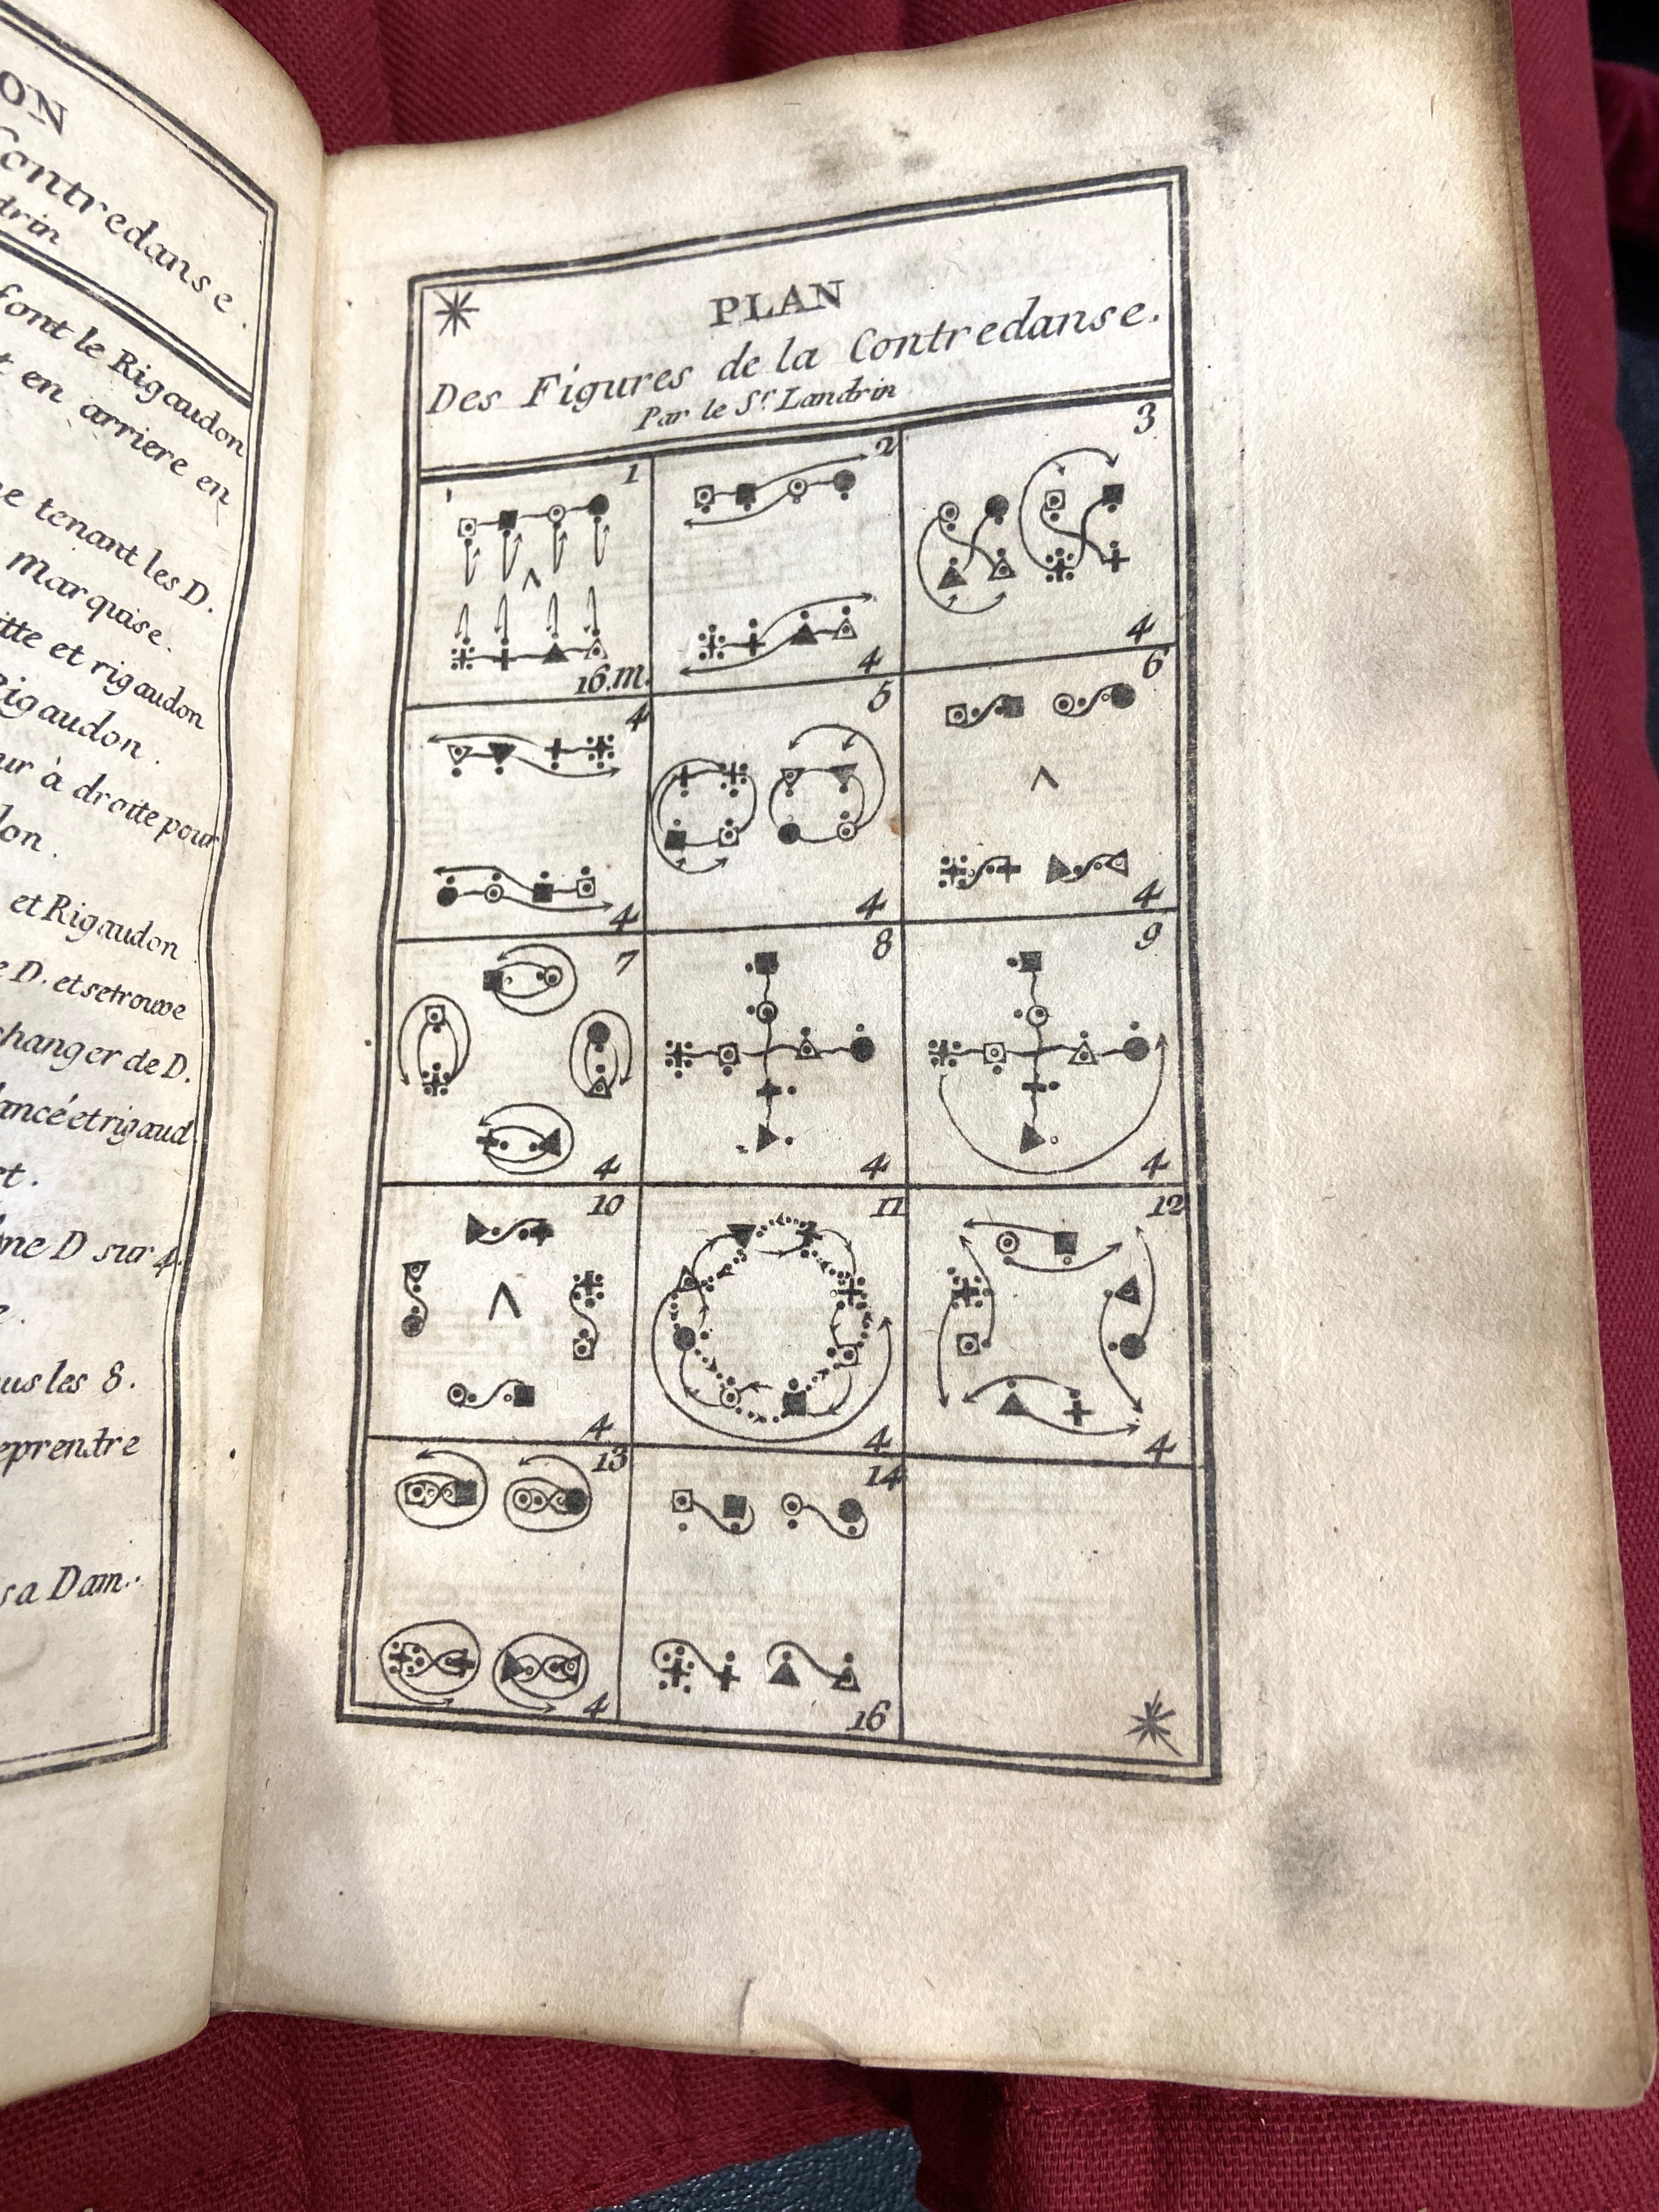 ON
Contredanse.
drin
font le Rigaudon
en arriere en
tenant les D.
Marquise.
itte et rigaudon
Rigaudon.
ur à droite pour
lon.
et Rigaudon
D. et se trouve
changer de D.
lancé et rigaud
D sur 4.
us les 8.
eprendre
sa Dam.
PLAN
Des Figures de la Contredanse.
Par le Sr. Landrin
1 2 3
16.m. 4 4
4 5 6
4 4 4
7 8 9
4 4 4
10 11 12
4 4 4
13 14
4 16